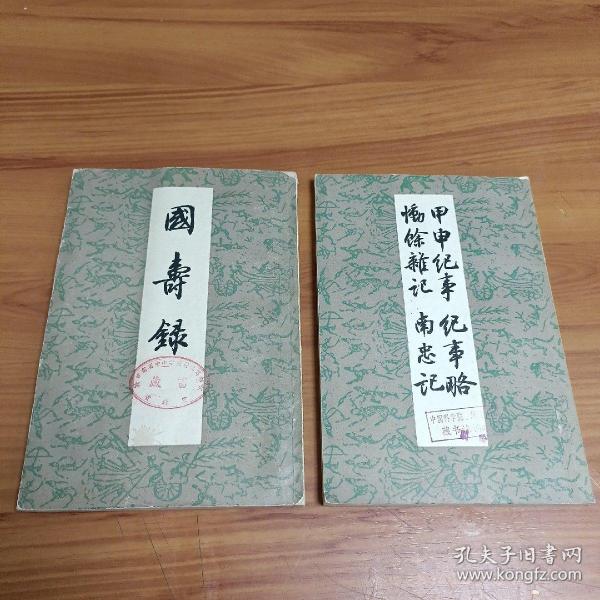 國壽録
藏書
甲申纪事 纪事略
慟餘雜记 南忠记
中国科学院
藏书
孔夫子旧书网
www.kongfz.com